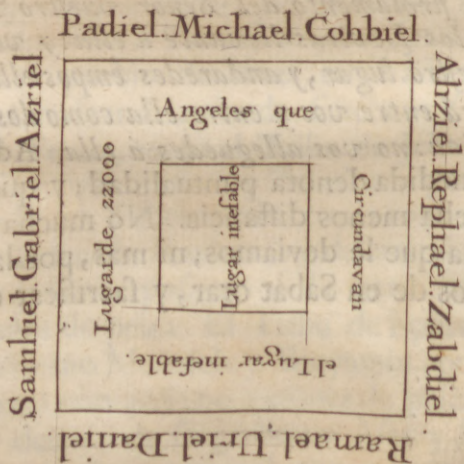 Padiel. Michael. Cohbiel.
Ahziel Rephael Zabdiel.
Ramael. Uriel. Daniel.
Samhiel. Gabriel. Azriel.
Angeles que
Circundavan
el Lugar inefable.
Lugar de 22000
Lugar inefable